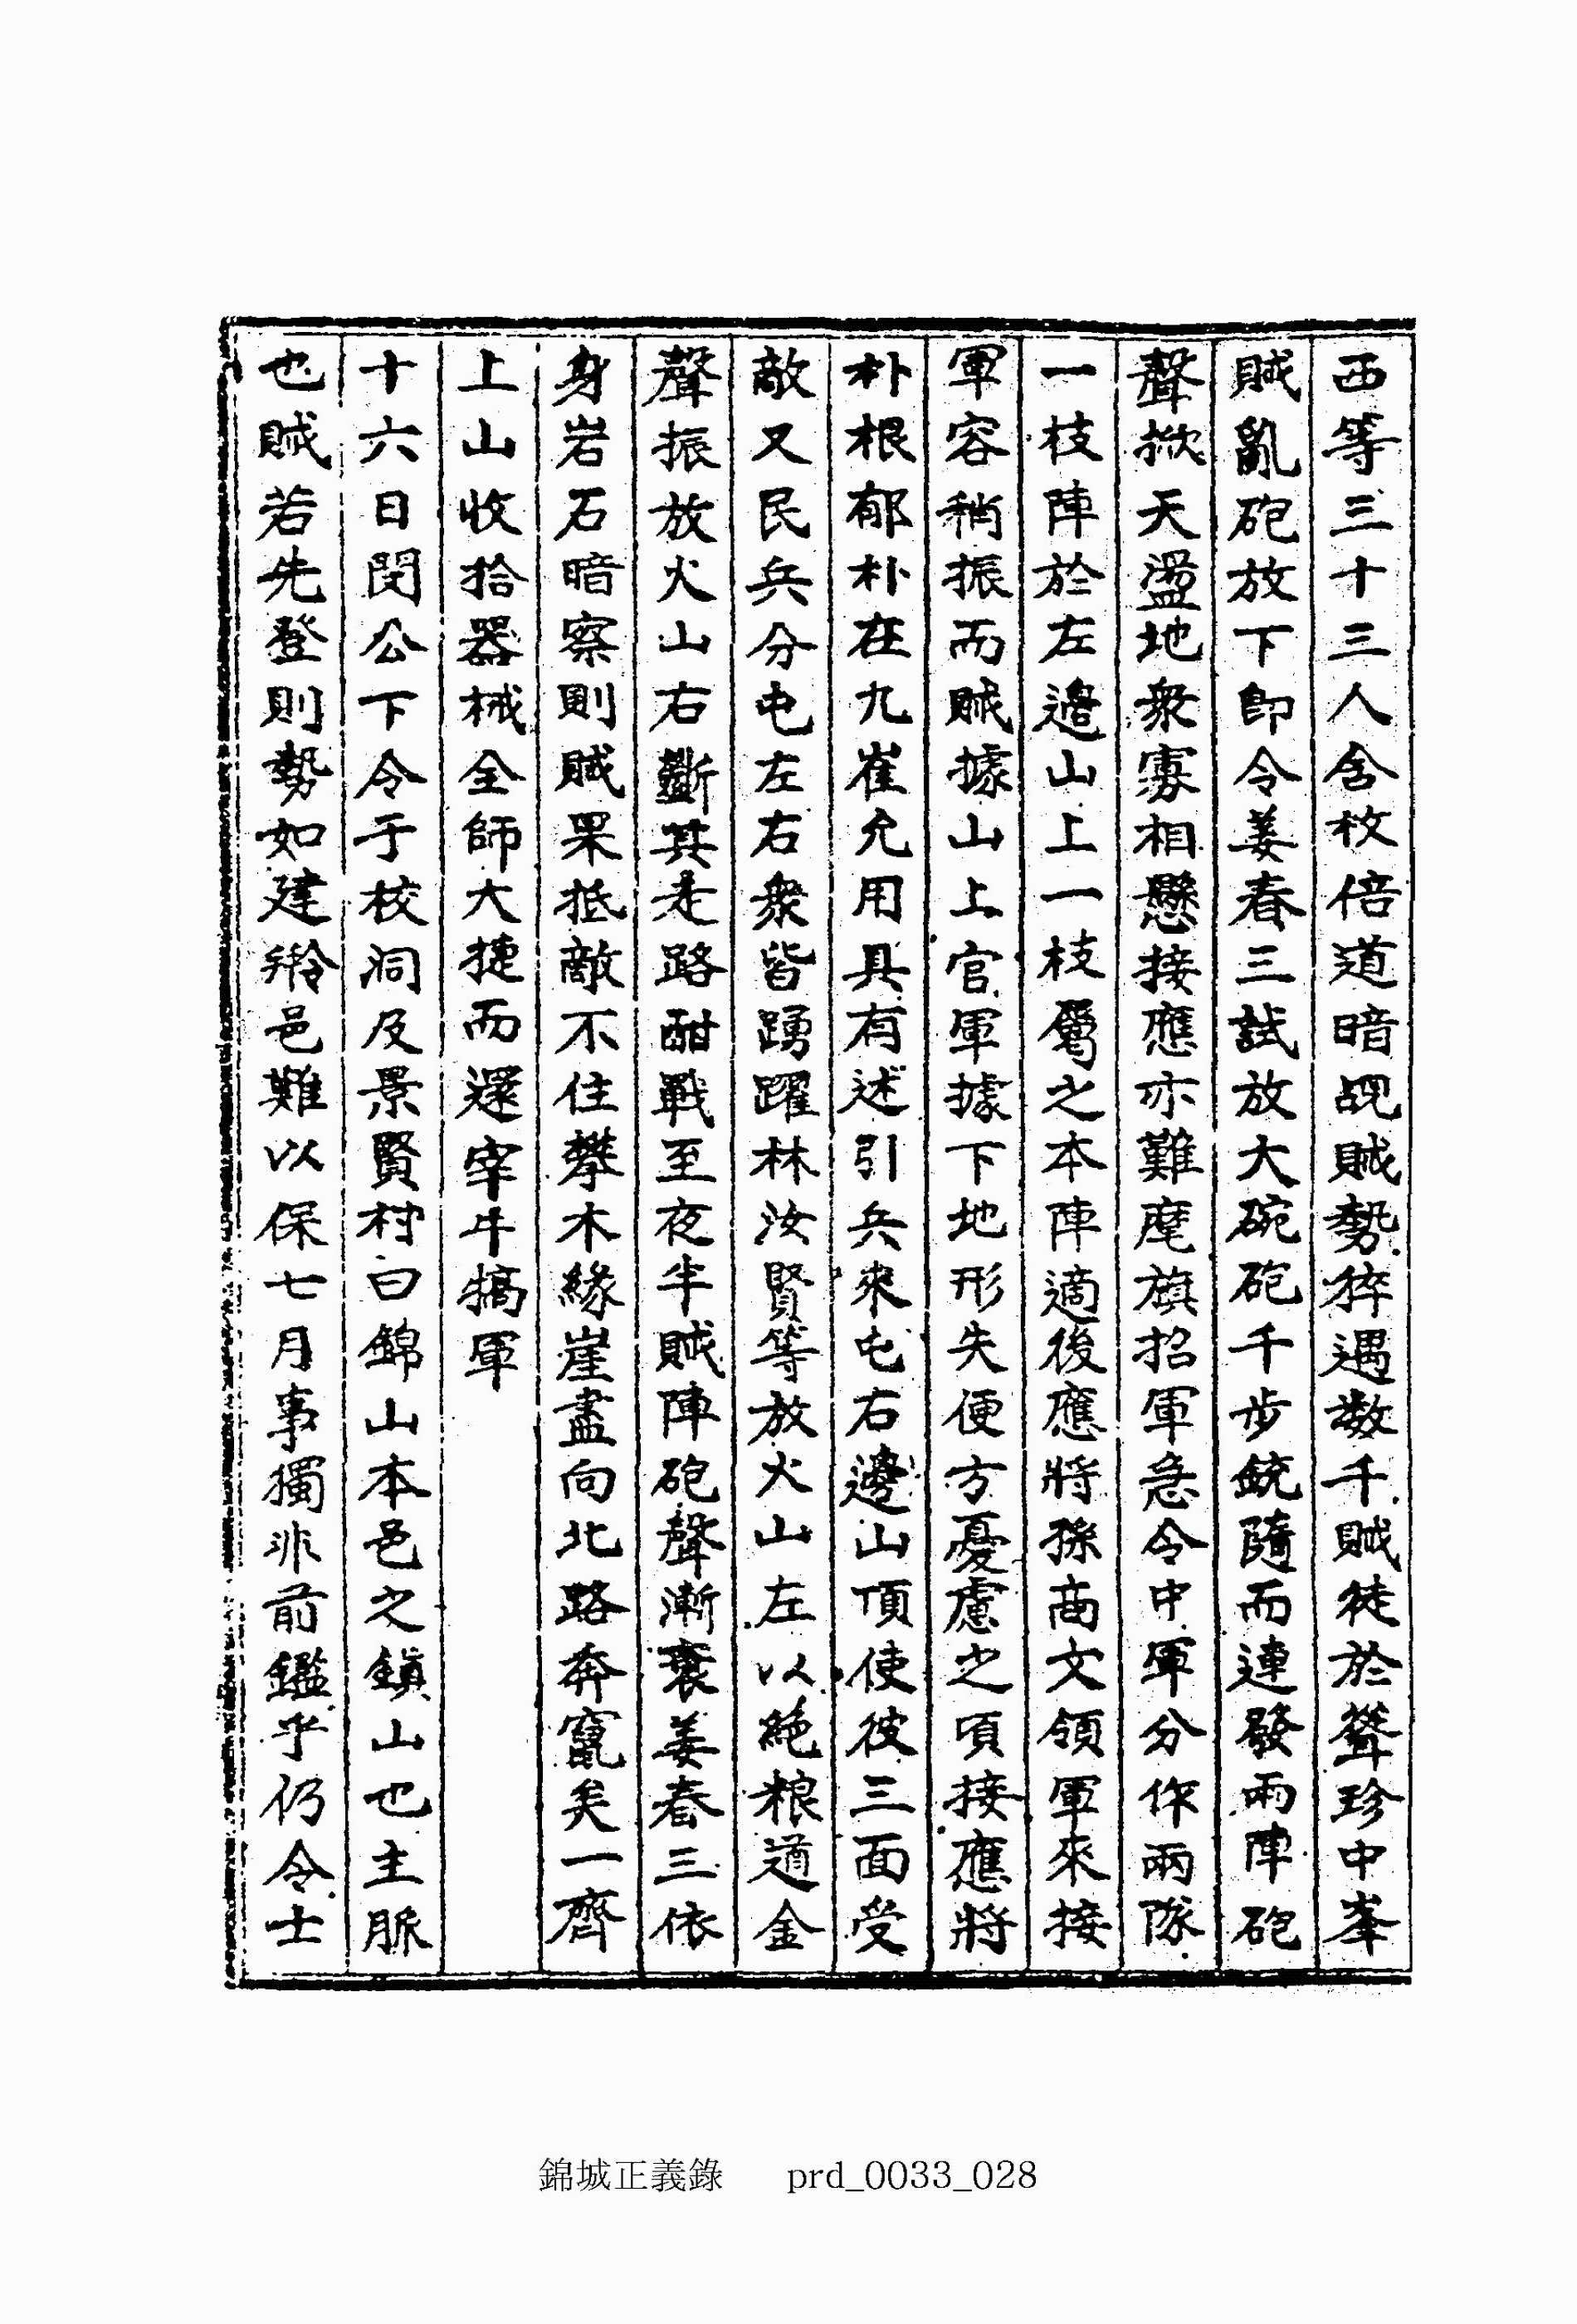 西等三十三人含枚倍道暗覘賊勢猝遇数千賊徒於聱珍中峯
賊亂砲放下卽令姜春三試放大碗砲千步銃隨而連發兩陣砲
聲掀天盪地衆寡相懸接應亦難麾旗招軍急令中軍分作兩隊
一枝陣於左邉山上一枝屬之本陣適後應將孫商文領軍來接
軍容稍振而賊據山上官軍據下地形失便方憂慮之頃接應將
朴根郁朴在九崔允用具有述引兵來屯右邊山頂使彼三面受
敵又民兵分屯左右衆皆踴躍林汝賢等放火山左以絶粮道金
聲振放火山右斷其走路酣戰至夜半賊陣砲聲漸衰姜春三依
身岩石暗察則賊果抵敵不住攀木緣崖盡向北路奔竄矣一齊
上山收拾器械全師大捷而還宰牛犒軍
十六日閔公下令于校洞及景賢村曰錦山本邑之鎭山也主脈
也賊若先登則勢如建瓴邑難以保七月事獨非前鑑乎仍令士
錦城正義錄 prd_0033_028